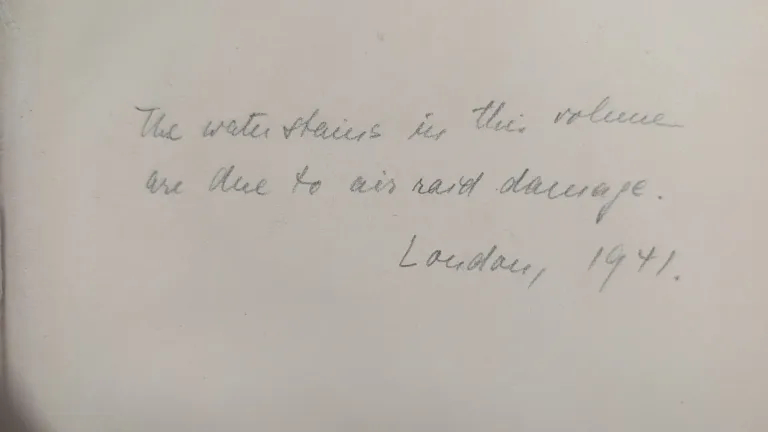 The water stains in this volume
are due to air raid damage.
London, 1941.